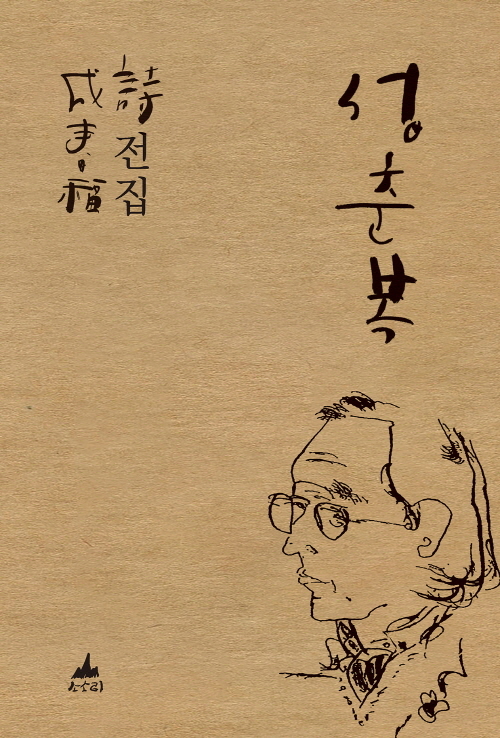 성춘복
詩전집
成春福
소소리